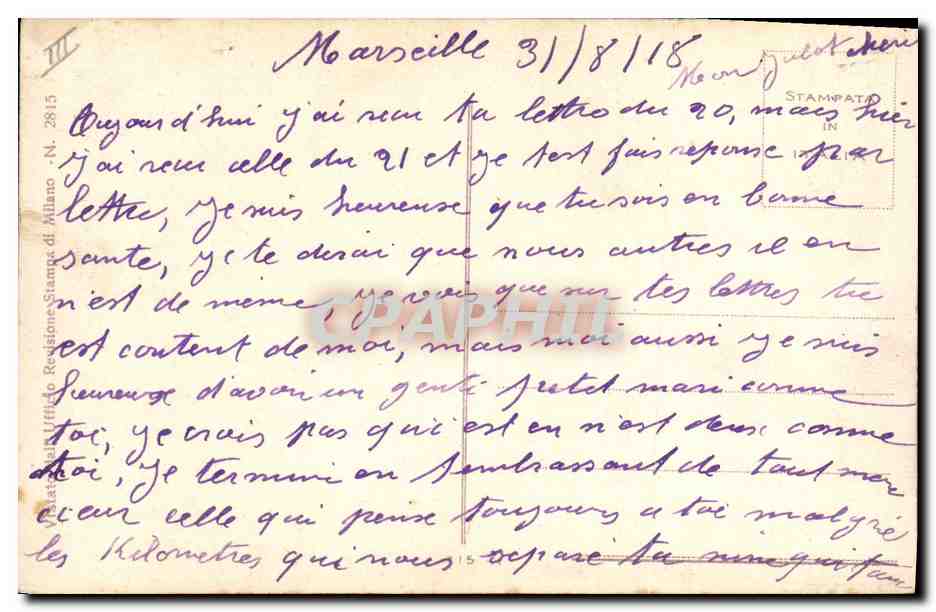 III
Marseille 31/8/18
Mon Julot cheri
STAMPATA
IN
ITALIA
Aujourd'hui j'ai reçu ta lettre du 20, mais hier
j'ai reçu celle du 21 et je t'est fais reponse par
lettre, je suis heureuse que tu sois en bonne
sante, je te dirai que nous autres il en
n'est de même, je vois que sur tes lettres tu
est content de moi, mais moi aussi je suis
heureuse d'avoir un genti petit mari comme
toi, je crois pas qu'i est en n'est deux comme
toi, je termine en t'embrassant de tout mon
cœur celle qui pense toujours a toi malgré
les Kilometres qui nous separe ta nine qui t'aime
Vistato dall'Ufficio Revisione Stampa di Milano - N. 2815
15
CPAPHIL